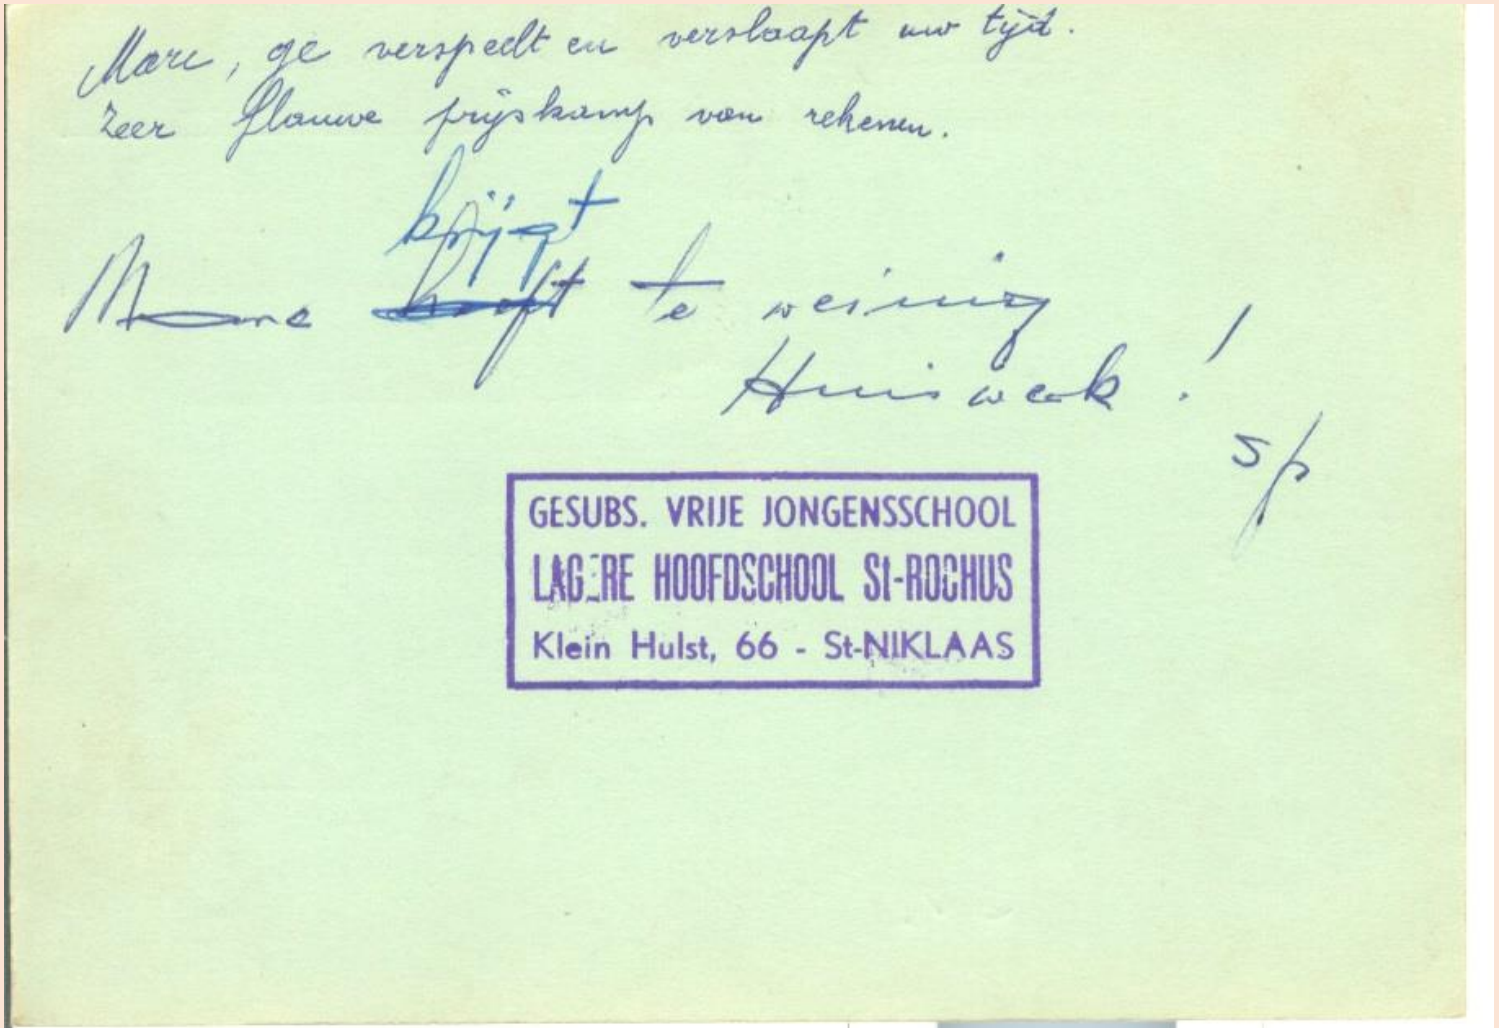 Marc, ge verspeelt en verslaapt uw tijd.
Zeer flauwe prijskamp van rekenen.
krijgt
Marc heeft te weinig
Huiswerk !
Sp
GESUBS. VRIJE JONGENSSCHOOL
LAGERE HOOFDSCHOOL St-ROCHUS
Klein Hulst, 66 - St-NIKLAAS